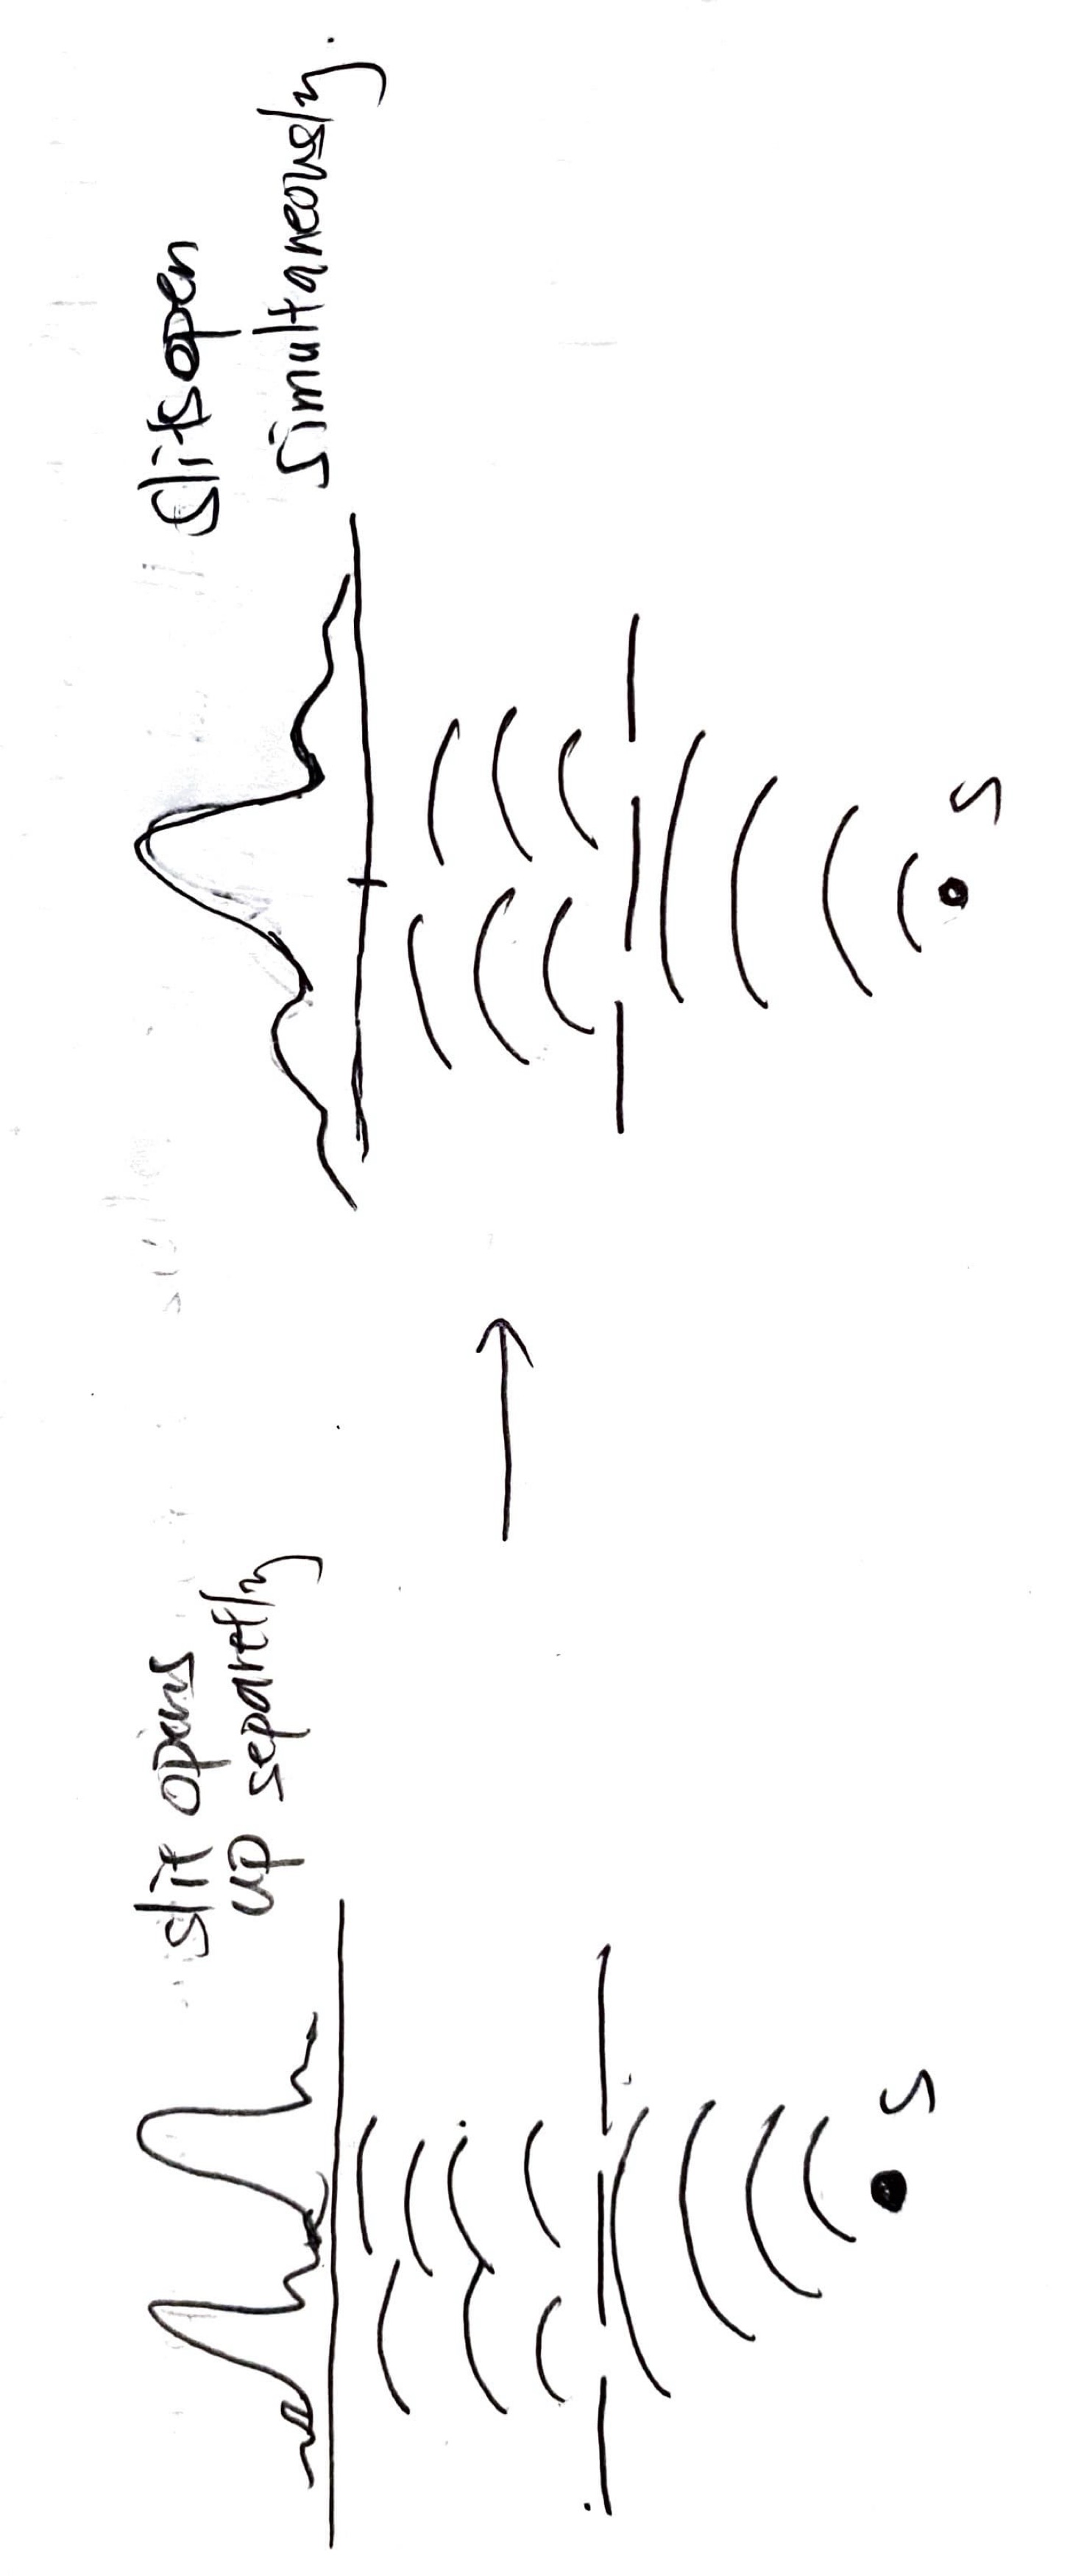 slit opens
up separetly
S
slits open
simultaneously.
S